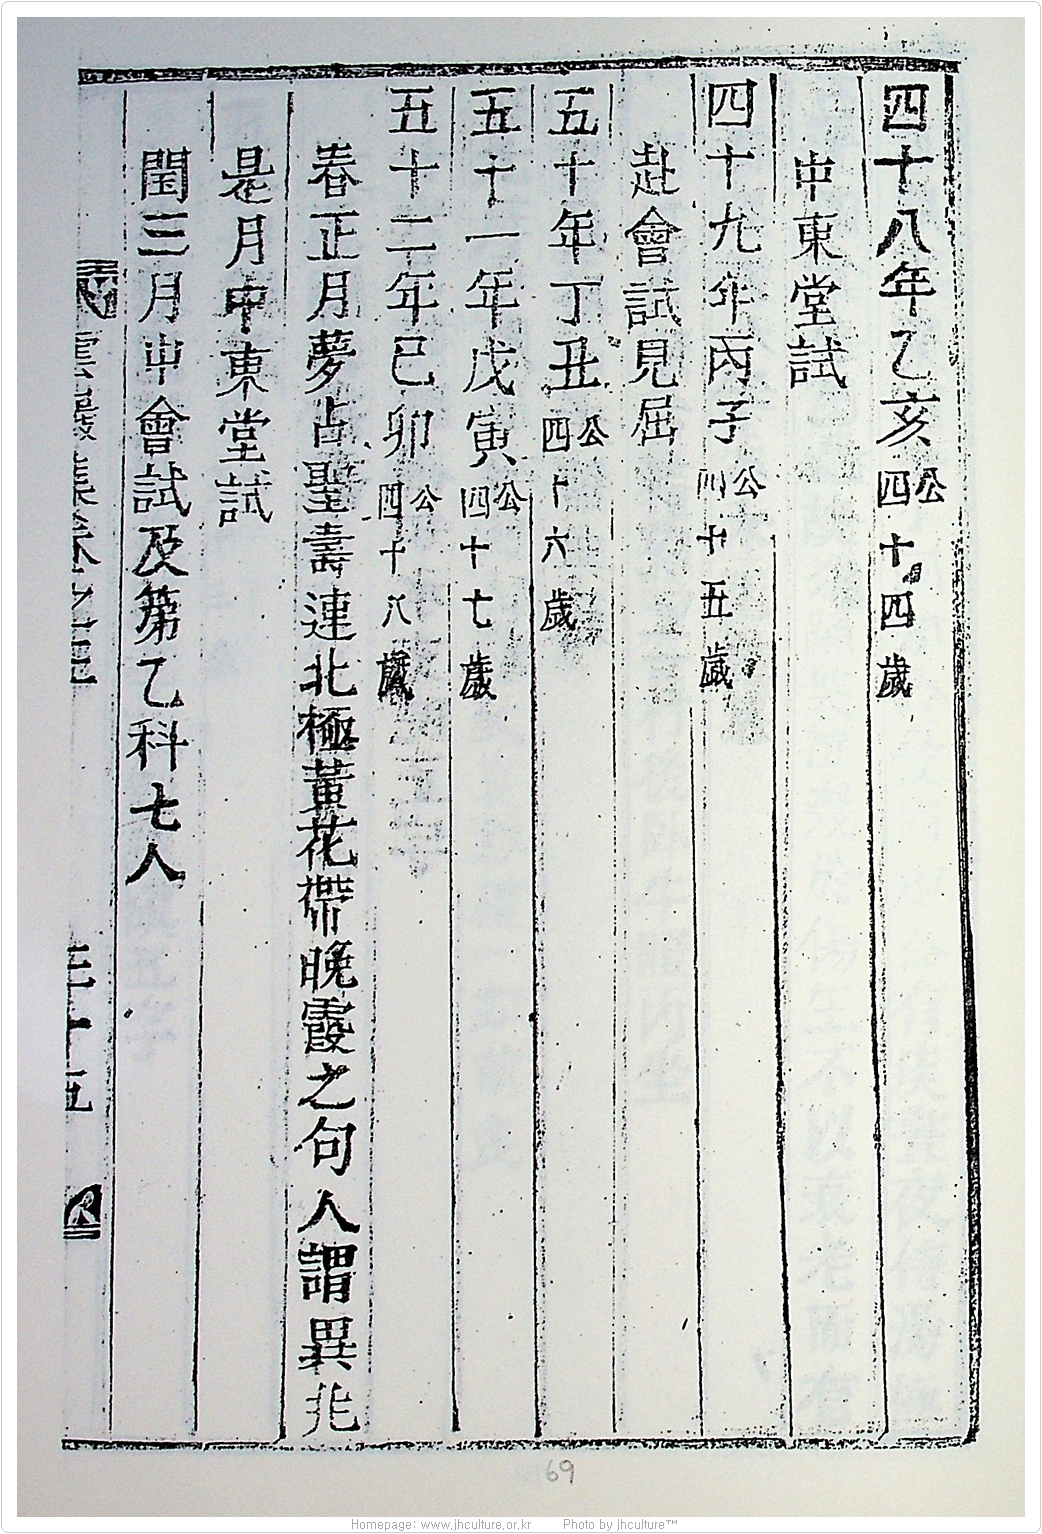 四十八年乙亥公四十四歲
中東堂試
四十九年丙子公四十五歲
赴會試見屈
五十年丁丑公四十六歲
五十一年戊寅公四十七歲
五十二年己卯公四十八歲
春正月夢占聖壽連北極黃花帶晩霞之句人謂異兆
是月中東堂試
閏三月中會試及第乙科七人
雲巖集卷之三
三十五
69
Homepage: www.jhculture.or.kr Photo by jhculture™